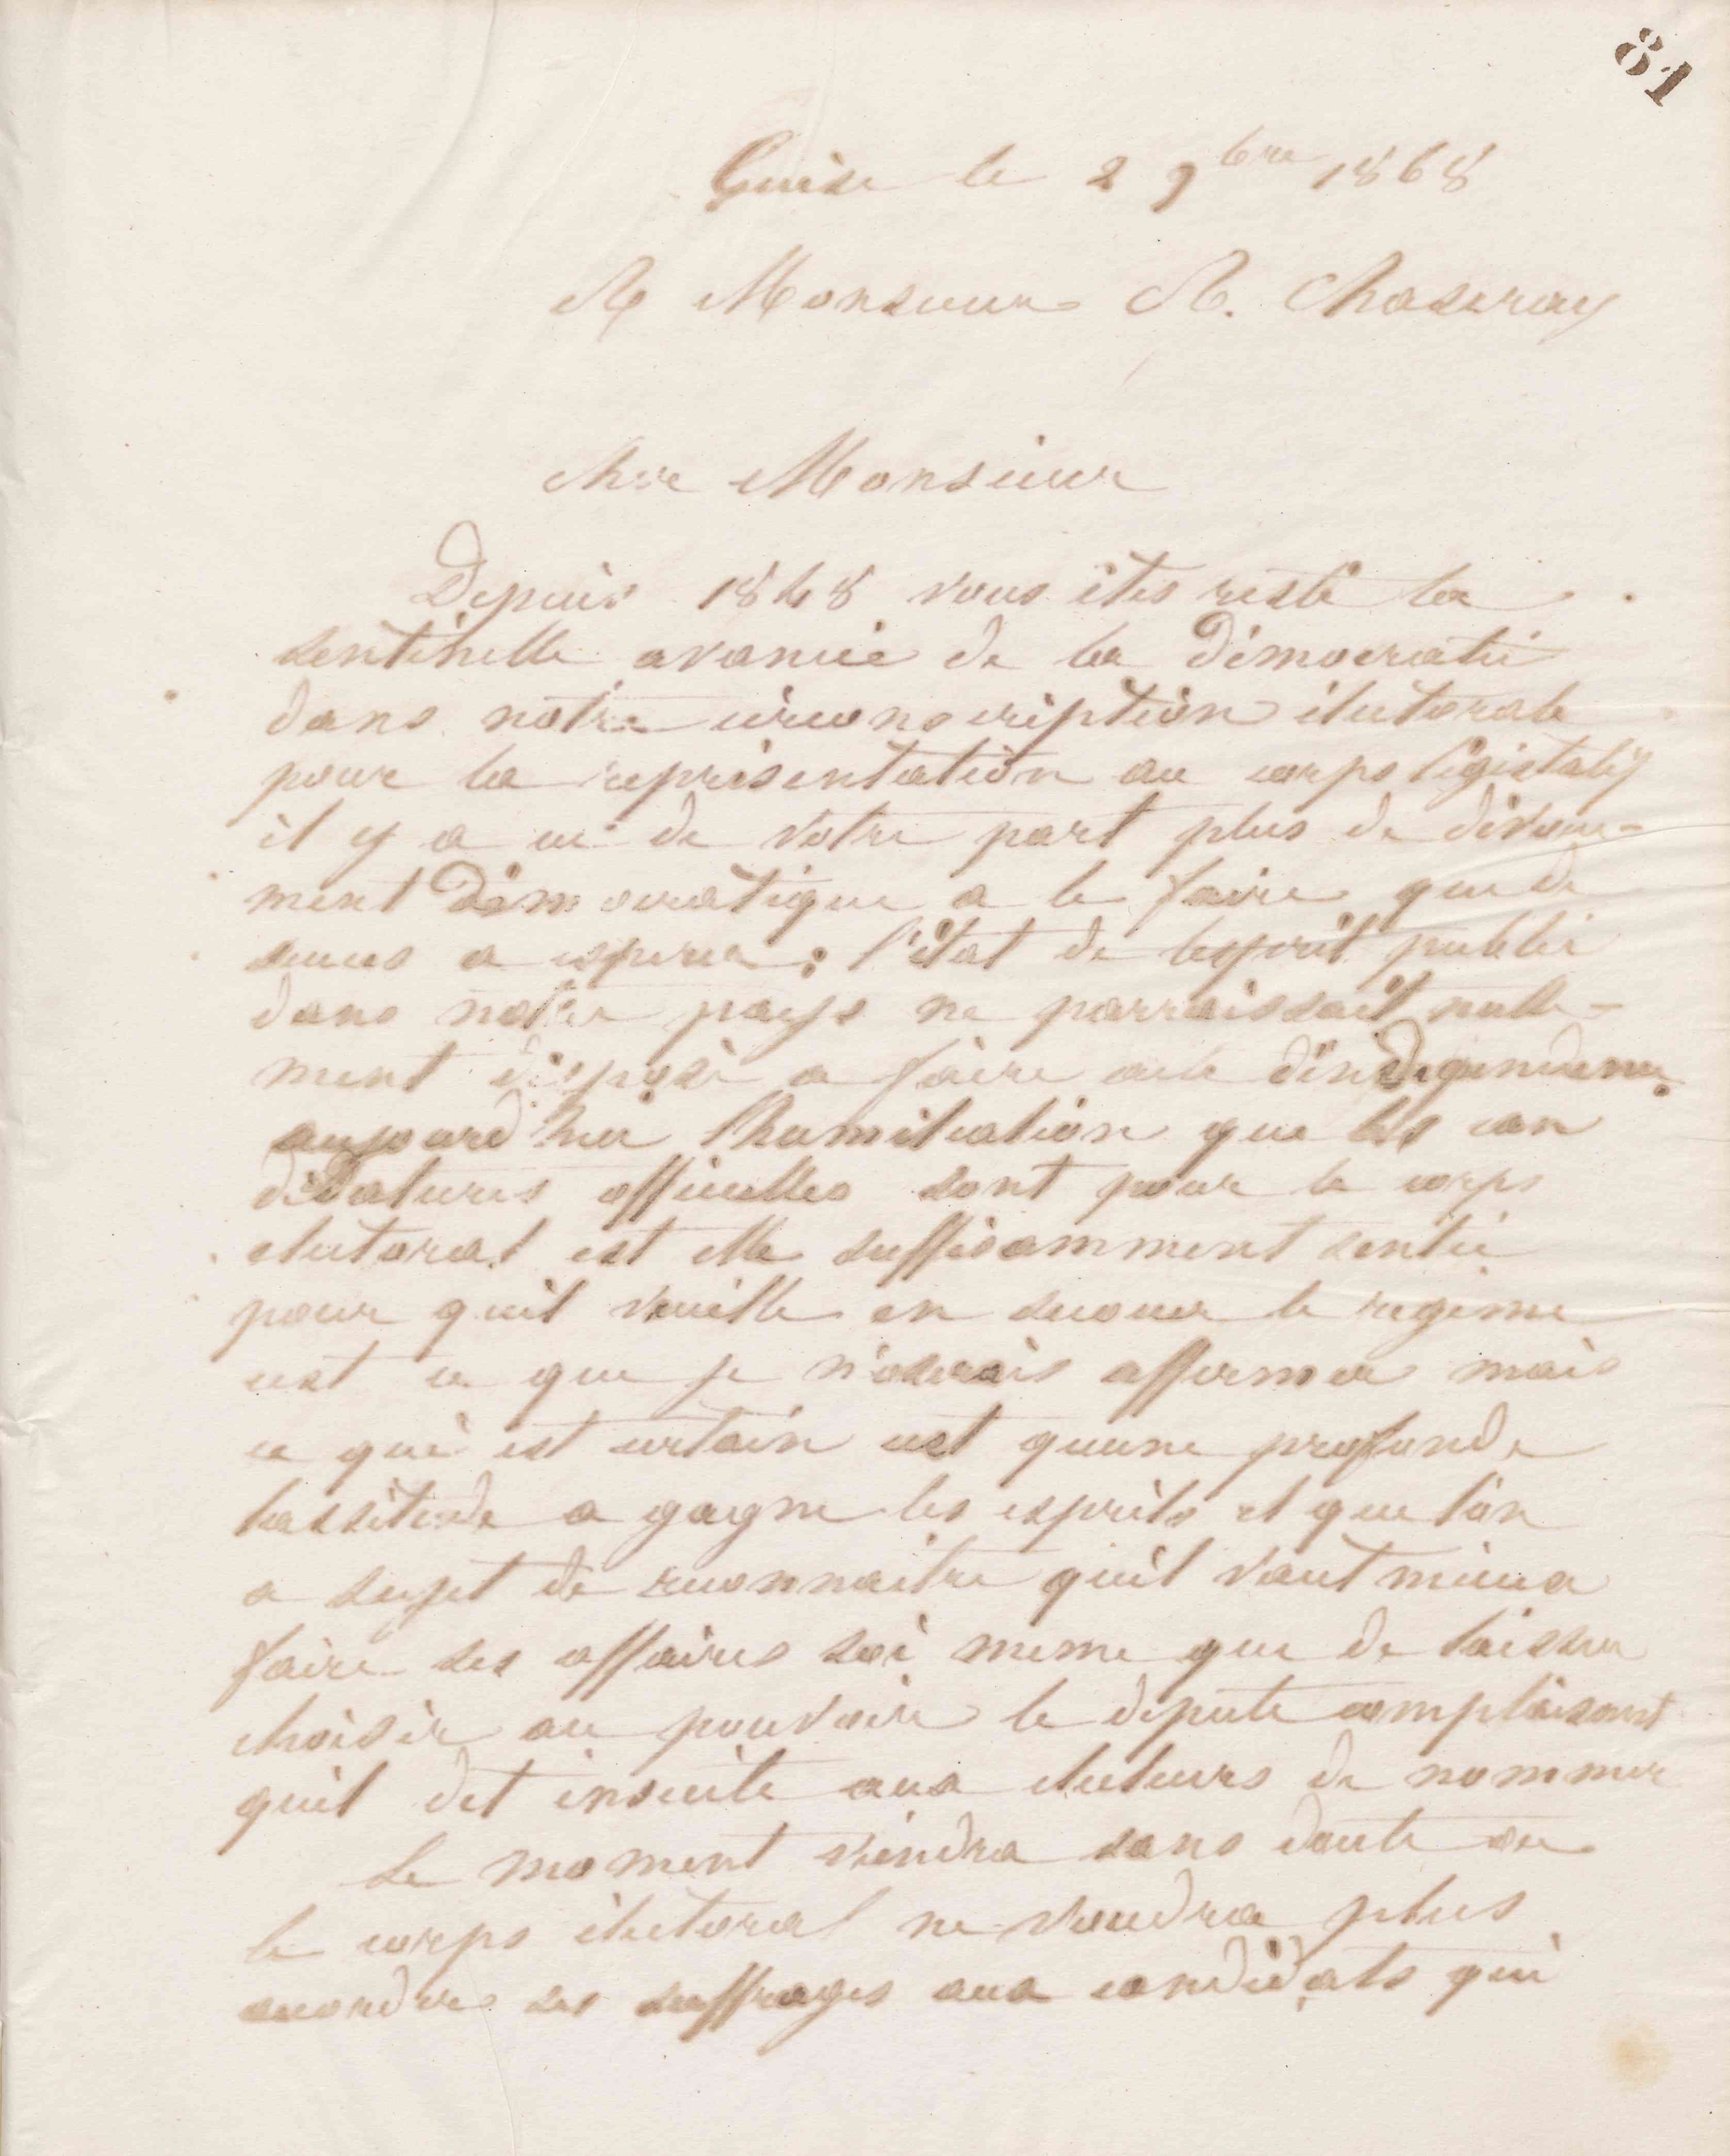 81
Guise le 2 9bre 1868
A Monsieur A. Chaseray
cher Monsieur
Depuis 1848 vous êtes resté la
sentinelle avancée de la démocratie
dans notre circonscription électorale
pour la représentation au corps législatif
il y a eu de votre part plus de dévoue-
ment Démocratique a le faire que de
succes a esperer : l'état de lesprit public
dans notre pays ne parraissait nulle-
ment disposé a faire acte d'indépendence.
aujourd'hui lhumiliation que les can
didatures officielles sont pour le corps
electoral est elle suffisamment sentie
pour quil veuille en secouer le regime
cest ce que je n'oserais affirmer mais
ce qui est certain cest quune profonde
lassitude a gagne les esprits et que lon
a sujet de reconnaitre quil vaut mieux
faire ses affaires soi meme que de laisser
choisir au pouvoir le depute complaisant
quil dit ensuite aux electeurs de nommer
Le moment viendra sans doute ou
le corps électoral ne voudra plus
accorder ses suffrages aux candidats qui